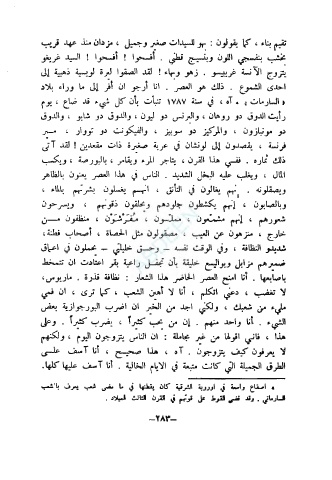 تقيم بناء ، كما يقولون : بهو للسيدات صغير وجميل ، مزدان منذ عهد قريب
بخشب بنفسجي اللون وبنسيج قطني . أفسحوا ! أفسحوا ! السيد غريغو
يتزوج الآنسة غريبيسو . زهو وبهاء ! لقد الصقوا ليرة لويسية ذهبية إلى
احدى الشموع . ذلك هو هذا العصر . أنا أرجو ان أفر إلى ما وراء بلاد
« السارمات » ٭ . آه ، في سنة ١٧٨٧ تنبأت بأن كل شيء قد ضاع ، يوم
رأيت الدوق دو روهان ، والبرنس دو ليون ، والدوق دو شابو ، والدوق
دو مونبازون ، والمركيز دو سوبيز ، والفيكونت دو توور ، بير
فرنسة ، يقصدون إلى لونشان في عربة صغيرة ذات مقعدين ! لقد آتى
ذلك ثماره . ففي هذا القرن ، يتاجر المرء ويقامر ، بالبورصة ، ويكسب
المال ، ويغلب عليه البخل الشديد . والناس في هذا العصر يعنون بالظاهر
ويصقلونه . انهم يغالون في التأنق ، انهم يغسلون بشرتهم بالماء ،
وبالصابون ، إنهم يكشطون جلودهم ويحلقون ذقونهم ، ويسرحون
شعورهم ، إنهم مشمّعون ، مملّسون ، مفرشون ، منظفون من
خارج ، منزهون عن العيب ، مصقولون مثل الحصاة ، أصحاب فطنة ،
شديدو النظافة ، وفي الوقت نفسه - وحق خليلتي - يحملون في اعماق
ضميرهم مزابل وبواليع خليقة بأن تجفل راعية بقر اعتادت ان تتمخط
باصابعها . أنا امنح العصر الحاضر هذا الشعار : نظافة قذرة . ماريوس ،
لا تغضب ، دعني اتكلم ، أنا لا أهين الشعب ، كما ترى ، ان فمي
مليء من شعبك ، ولكني اجد من الخير ان اضرب البورجوازية بعض
الشيء . أنا واحد منهم . إن من يحب كثيراً ، يضرب كثيراً . وعلى
هذا ، فاني اقولها من غير مجاملة : ان الناس يتزوجون اليوم ، ولكنهم
لا يعرفون كيف يتزوجون . آه ، هذا صحيح ، أنا آسف على
الطرق الجميلة التي كانت متبعة في الايام الخالية . أنا آسف عليها كلها .
٭ اصقاع واسعة في اوروبة الشرقية كان يقطنها في ما مضى شعب يعرف بالشعب
السارماتي . وقد قضى القوط على قوتهم في القرن الثالث للميلاد .
-٢٨٣-